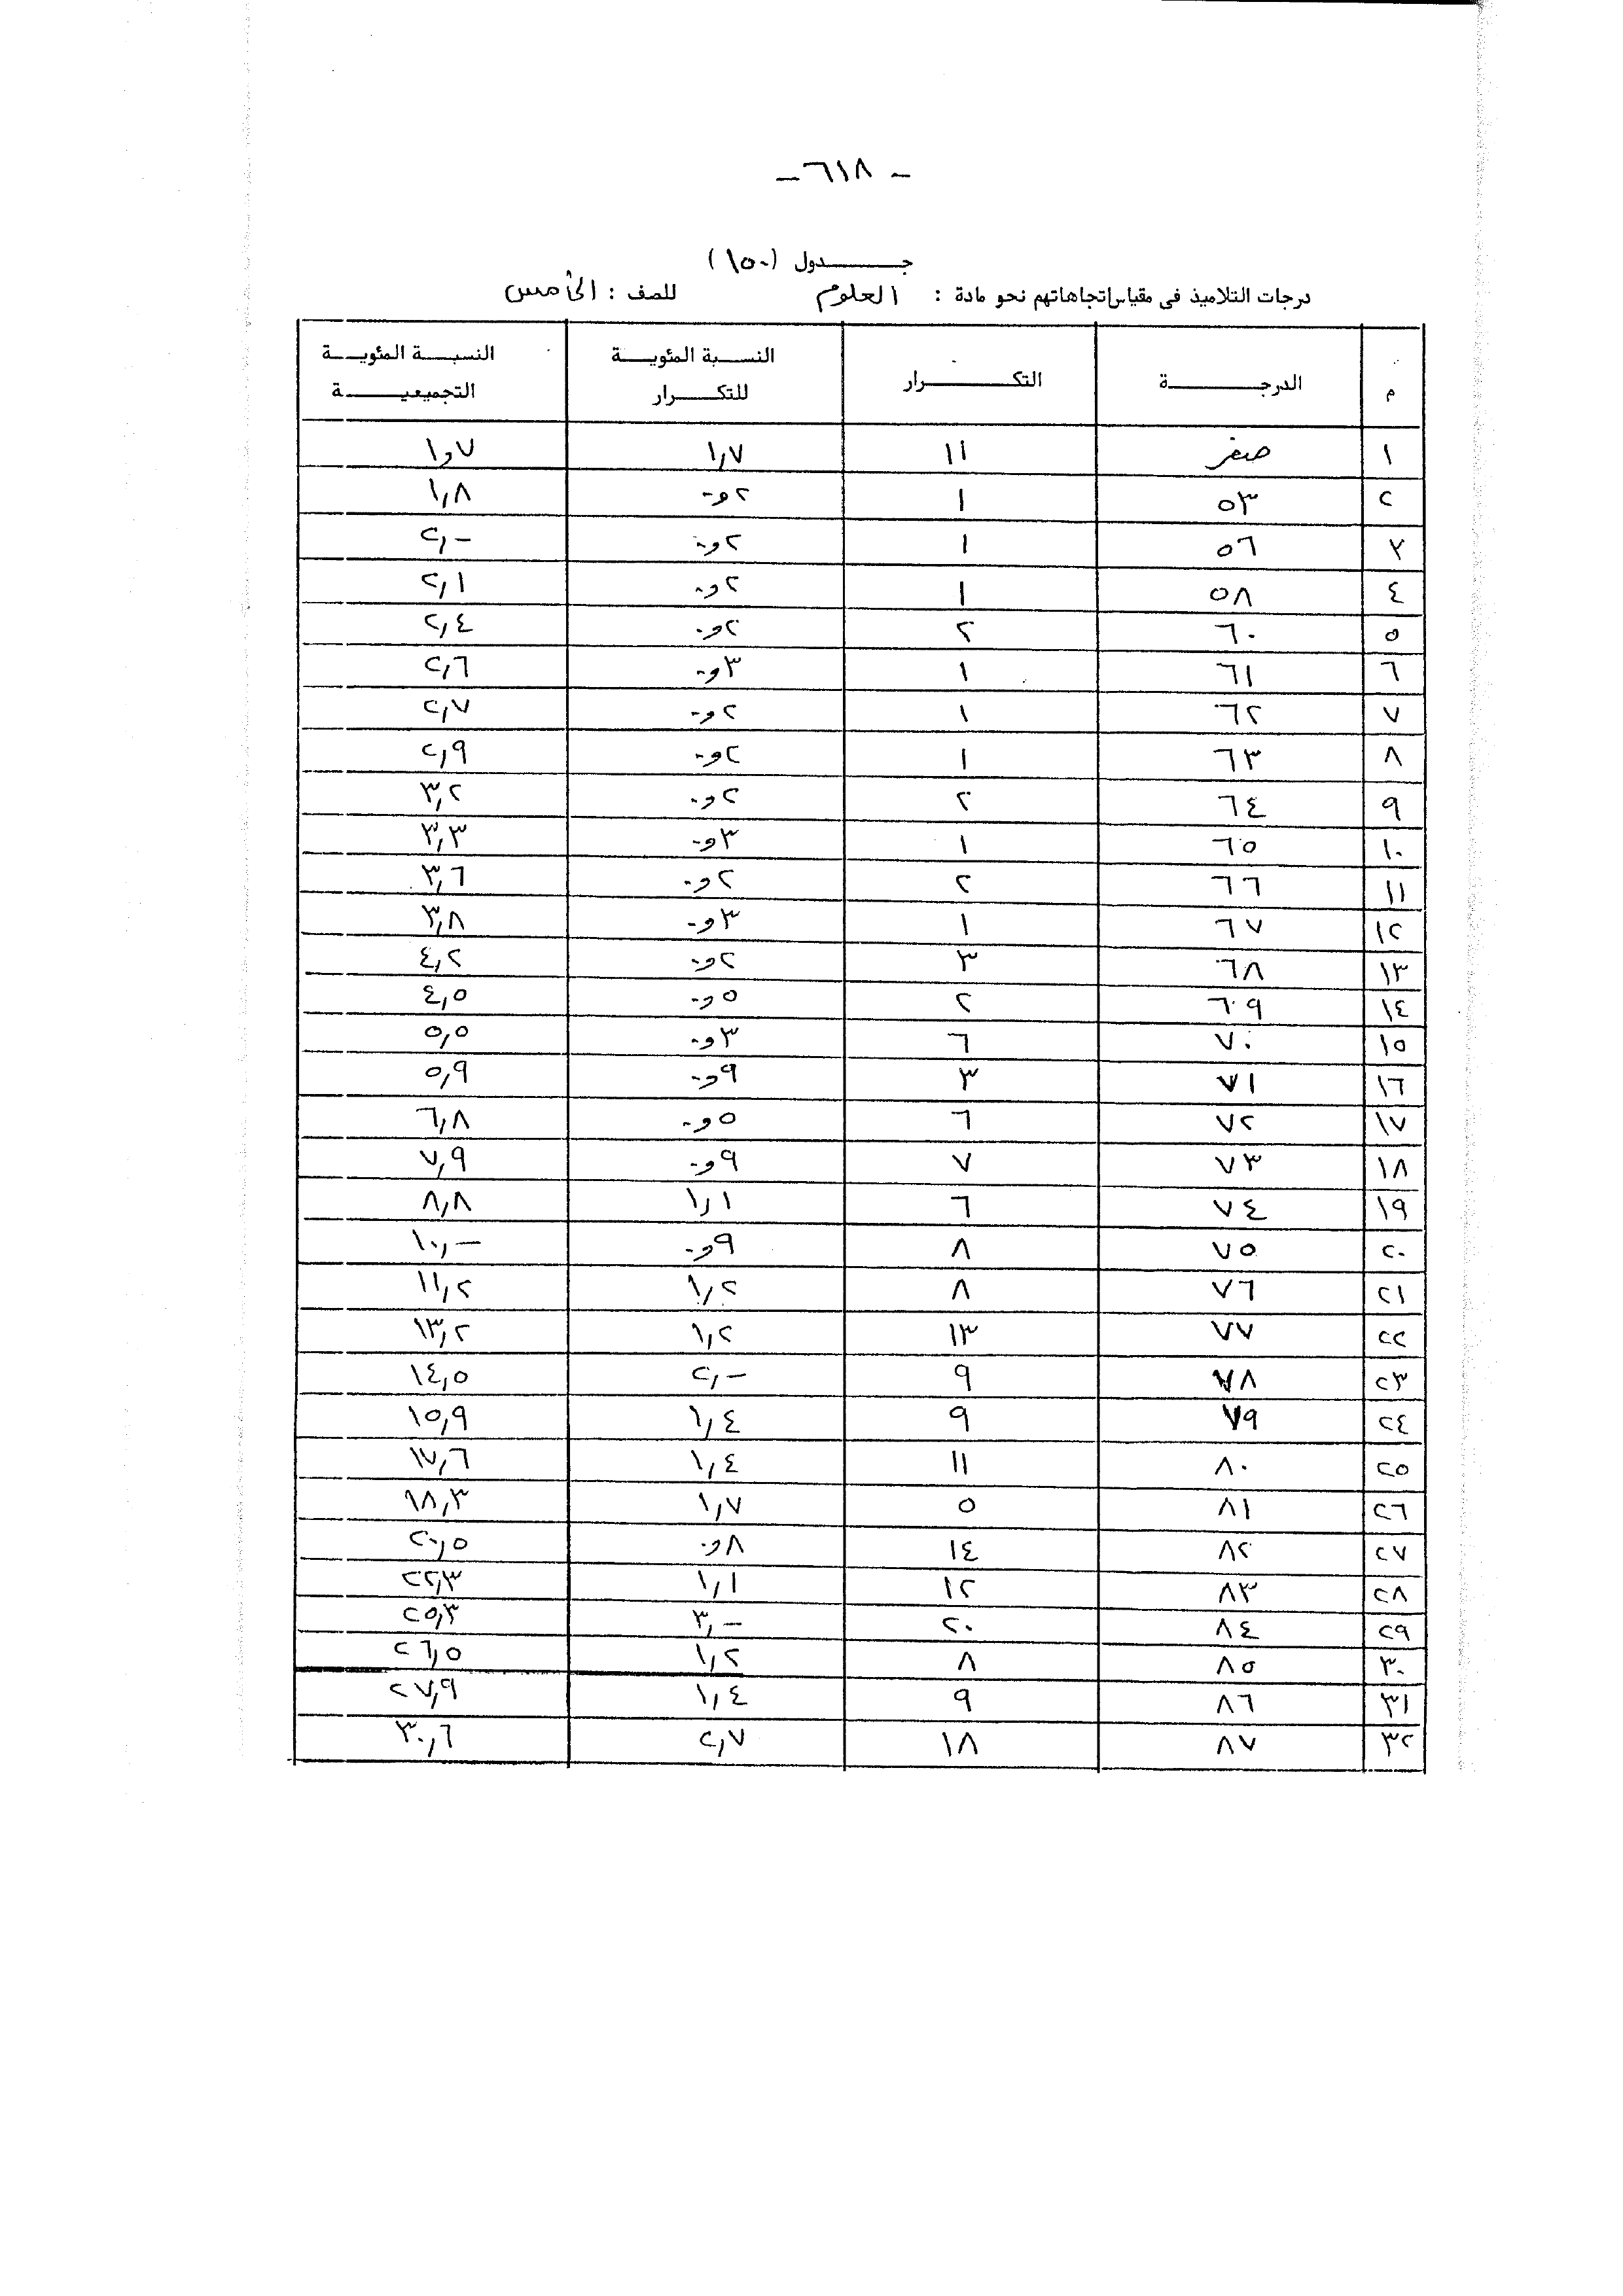 - ٦١٨ -
جـــــــدول (١٥٠)
درجات التلاميذ فى مقياس إتجاهاتهم نحو مادة : العلوم للصف : الخامس
م الدرجـــــــة التكـــــــرار النسـبة المئويـــة للتكـــرار النسبـــة المئويـــة التجميعيـــة
١ صفر ١١ ١,٧ ١و٧
٢ ٥٣ ١ ٢و- ١,٨
٣ ٥٦ ١ ٢و- ٢,-
٤ ٥٨ ١ ٢و- ٢,١
٥ ٦٠ ٢ ٢و- ٢,٤
٦ ٦١ ١ ٣و- ٢,٦
٧ ٦٢ ١ ٢و- ٢,٧
٨ ٦٣ ١ ٢و- ٢,٩
٩ ٦٤ ٢ ٢و- ٣,٢
١٠ ٦٥ ١ ٣و- ٣,٣
١١ ٦٦ ٢ ٢و- ٣,٦
١٢ ٦٧ ١ ٣و- ٣,٨
١٣ ٦٨ ٣ ٢و- ٤,٢
١٤ ٦٩ ٢ ٥و- ٤,٥
١٥ ٧٠ ٦ ٣و- ٥,٥
١٦ ٧١ ٣ ٩و- ٥,٩
١٧ ٧٢ ٦ ٥و- ٦,٨
١٨ ٧٣ ٧ ٩و- ٧,٩
١٩ ٧٤ ٦ ١,١ ٨,٨
٢٠ ٧٥ ٨ ٩و- ١٠,-
٢١ ٧٦ ٨ ١,٢ ١١,٢
٢٢ ٧٧ ١٣ ١,٢ ١٣,٢
٢٣ ٧٨ ٩ ٢,- ١٤,٥
٢٤ ٧٩ ٩ ١,٤ ١٥,٩
٢٥ ٨٠ ١١ ١,٤ ١٧,٦
٢٦ ٨١ ٥ ١,٧ ١٨,٣
٢٧ ٨٢ ١٤ ٨و- ٢٠,٥
٢٨ ٨٣ ١٢ ١,١ ٢٢,٣
٢٩ ٨٤ ٢٠ ٣,- ٢٥,٣
٣٠ ٨٥ ٨ ١,٢ ٢٦,٥
٣١ ٨٦ ٩ ١,٤ ٢٧,٩
٣٢ ٨٧ ١٨ ٢,٧ ٣٠,٦